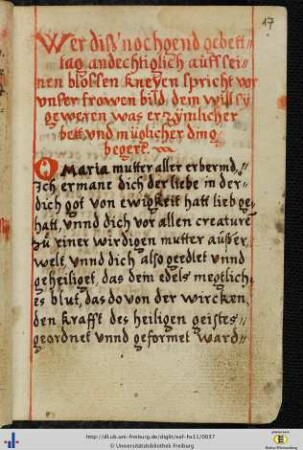 17
Wer diß nochgend gebett
tag andechtiglich auff sei-
nen blossen kneyen spricht vor
vnser frowen bild, dem will sy
geweren was er zymlicher
bett vnd müglicher ding
begert.
O Maria mutter aller erbermd,
Ich ermane dich der liebe in der
dich got von ewigkeit hatt lieb ge-
hatt, vnnd dich vor allen creature
zů einer wirdigen mutter außer
welt vnnd dich also geedlet vnnd
geheiliget, das dem edels megtlich
es blut, das do von der wircken
den krafft des heiligen geistes
geordnet vnnd geformet ward
http://dl.ub.uni-freiburg.de/diglit/saf-hs11/0037
© Universitätsbibliothek Freiburg